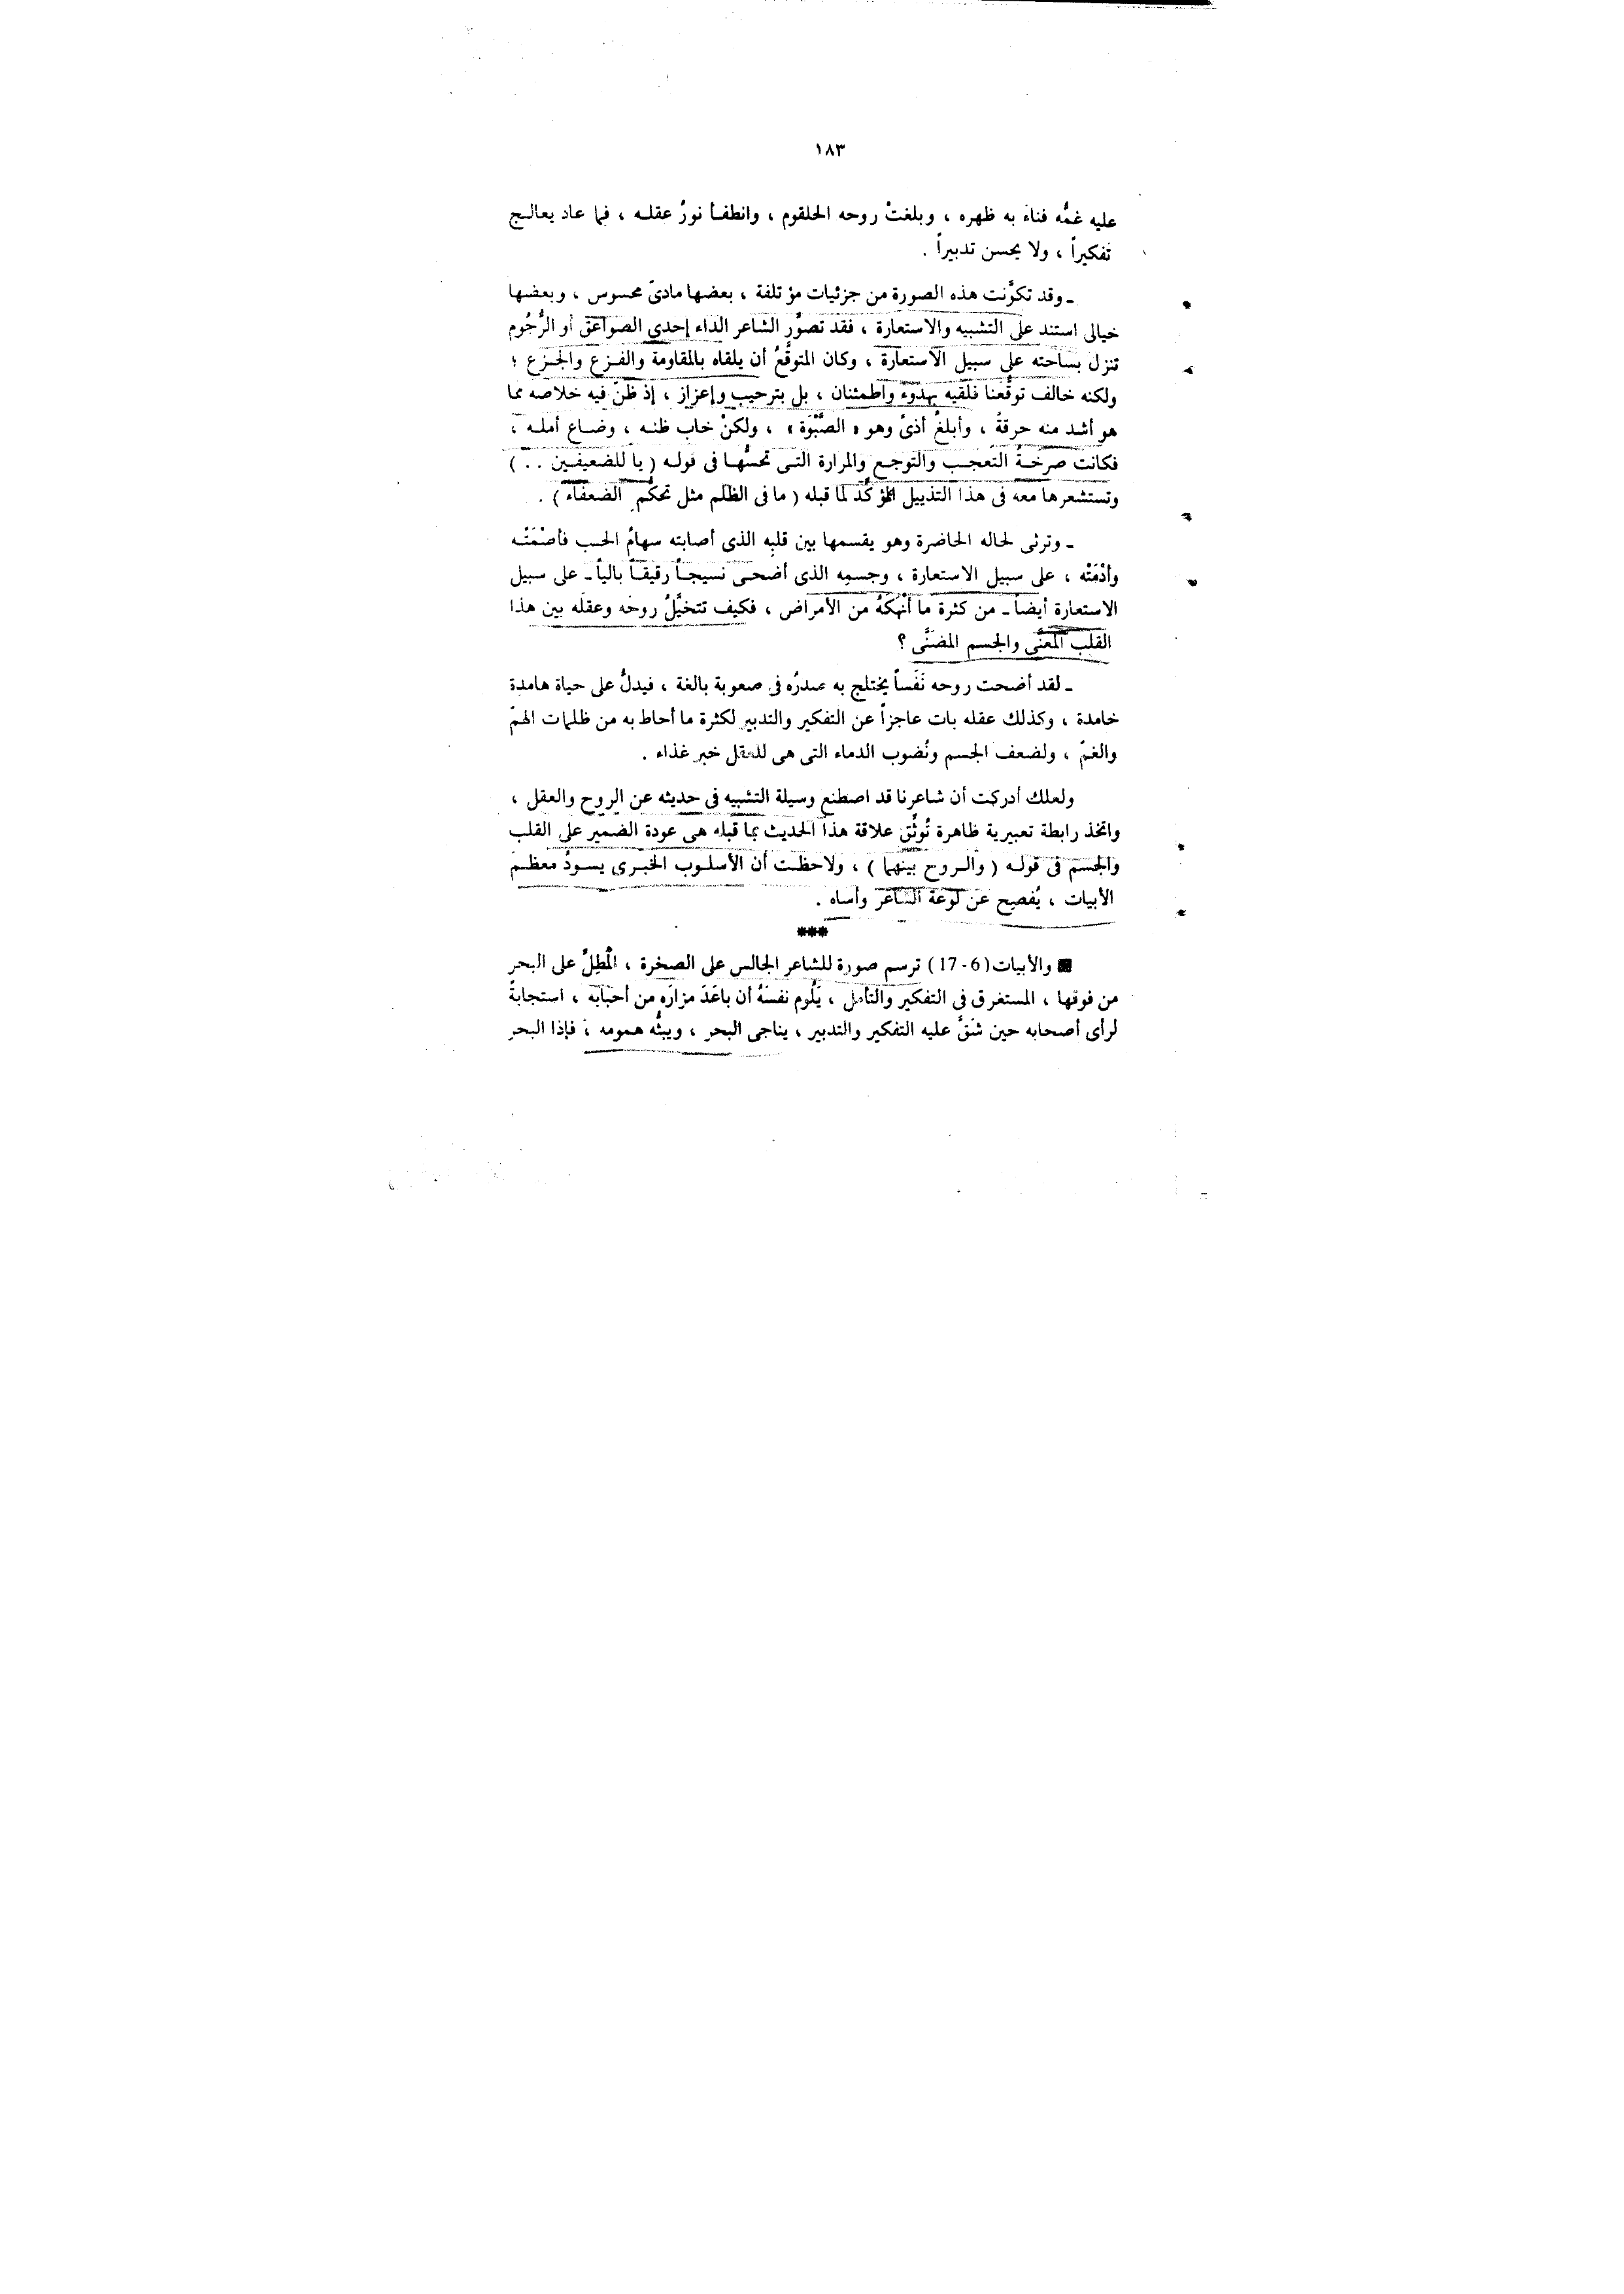 ١٨٣
عليه غمُّه فناءَ به ظهره ، وبلغتْ روحه الحلقوم ، وانطفأ نورُ عقله ، فما عاد يعالج
تفكيراً ، ولا يحسن تدبيراً .
ـ وقد تكوَّنت هذه الصورة من جزئيات مؤتلفة ، بعضها مادىّ محسوس ، وبعضها
خيالى استند على التشبيه والاستعارة ، فقد تصوَّر الشاعر الداء إحدى الصواعق أو الرُّجُوم
تنزل بساحته على سبيل الاستعارة ، وكان المتوقَّعُ أن يلقاه بالمقاومة والفزع والجزع ؛
ولكنه خالف توقُّعنا فلقيه بهدوء واطمئنان ، بل بترحيب وإعزاز ، إذ ظنّ فيه خلاصه مما
هو أشد منه حرقةً ، وأبلغُ أذىً وهو « الصَّبْوَة » ، ولكنْ خاب ظنه ، وضاع أمله ،
فكانت صرخةُ التعجب والتوجع والمرارة التى تحسُّها فى قوله ( يا للضعيفين . . )
وتستشعرها معه فى هذا التذييل المؤكِّد لما قبله ( ما فى الظلم مثل تحكُّم الضعفاء ) .
ـ وترثى لحاله الحاضرة وهو يقسمها بين قلبِه الذى أصابته سهامُ الحب فأصْمَتْه
وأدْمَتْه ، على سبيل الاستعارة ، وجسمِه الذى أضحى نسيجاً رقيقاً بالياً ـ على سبيل
الاستعارة أيضاً ـ من كثرة ما أنْهَكَهُ من الأمراض ، فكيف تتخيَّلُ روحَه وعقلَه بين هذا
القلب المُعَنَّى والجسم المضنَّى ؟
ـ لقد أضحت روحه نَفَساً يختلج به صدرُه فى صعوبة بالغة ، فيدلُّ على حياة هامدة
خامدة ، وكذلك عقله بات عاجزاً عن التفكير والتدبير لكثرة ما أحاط به من ظلمات الهمّ
والغمّ ، ولضعف الجسم ونُضوب الدماء التى هى للعقل خير غذاء .
ولعلك أدركت أن شاعرنا قد اصطنع وسيلة التشبيه فى حديثه عن الروح والعقل ،
واتخذ رابطة تعبيرية ظاهرة تُوثِّق علاقة هذا الحديث بما قبله هى عودة الضمير على القلب
والجسم فى قوله ( والروح بينهما ) ، ولاحظت أن الأسلوب الخبرى يسودُ معظم
الأبيات ، يُفصح عن لوعة الشاعر وأساه .
***
■ والأبيات (6 - 17) ترسم صورة للشاعر الجالس على الصخرة ، المُطِلِّ على البحر
من فوقها ، المستغرق فى التفكير والتأمل ، يَلُوم نفسَهُ أن باعَدَ مزارَه من أحبابه ، استجابةً
لرأى أصحابه حين شَقَّ عليه التفكير والتدبير ، يناجى البحر ، ويبثُّه همومه ، فإذا البحر